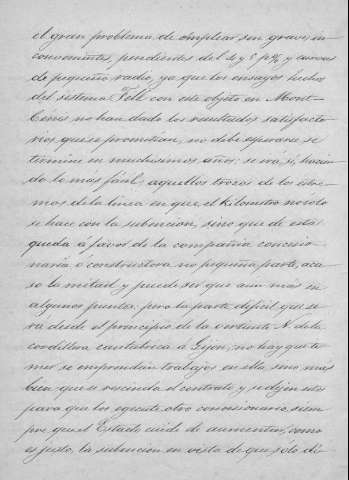 el gran problema de emplear, sin graves in-
convenientes, pendientes del 4 y 5 p% y curvas
de pequeño radio, ya que los ensayos hechos
del sistema Fell con este objeto en Mont-
Cénis no han dado los resultados satisfacto-
rios que se prometian, no debe esperarse se
termine en muchisimos años: se irá, si, hacien-
do lo mas fácil; aquellos trozos de los estre-
mos de la linea en que, el kilometro no solo
se hace con la subencion, sino que de esta
queda á favor de la compañia concesio-
naria ó constructora no pequeña parte, aca-
so la mitad y puede ser que aun mas en
algunos puntos: pero la parte dificil que se-
rá desde el principio de la vertiente N. de la
cordillera cantábrica á Gijon, no hay que te-
mer se emprendan trabajos en ella, sino mas
bien que se rescinda el contrato y se dejen estos
para que los egecute otro concesionario, siem-
pre que el Estado cuide de aumentar, como
es justo, la subencion en vista de que, solo di-